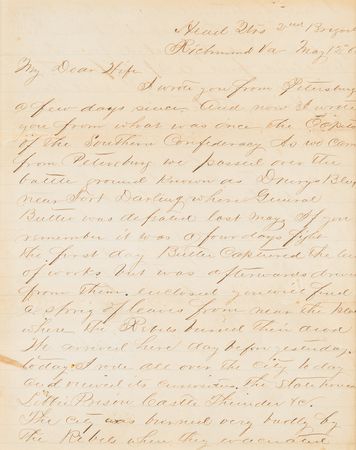 Head Qtrs 2nd Brigade
Richmond Va May 1
My Dear Wife
I wrote you from Petersburg
a few days since. and now I write
you from what was once the Capital
of the Southern Confederacy As we came
from Petersburg we passed over the
battle ground known as Drurys Bluff
near Fort Darling where General
Butler was defeated last May, If you
remember it was a four days fight
the first day Butler Captured the line
of works but was afterwards driven
from them. enclosed you will find
a sprig of leaves from near the
where the Rebels buried their dead
We arrived here day before yesterday.
today I rode all over the City today
and viewed its curiosities. The State house
Libbie Prison Castle Thunder &c.
The City was burned very badly by
the Rebels when they evacuated